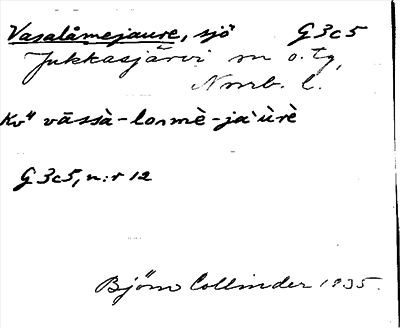 Vasalåmejaure, sjö G3c5
Jukkasjärvi sn o. tg,
Nrrb. l.
Kv" vāssà-lormè-ja`ùrè
G3c5, n:r 12
Björn Collinder 1935.